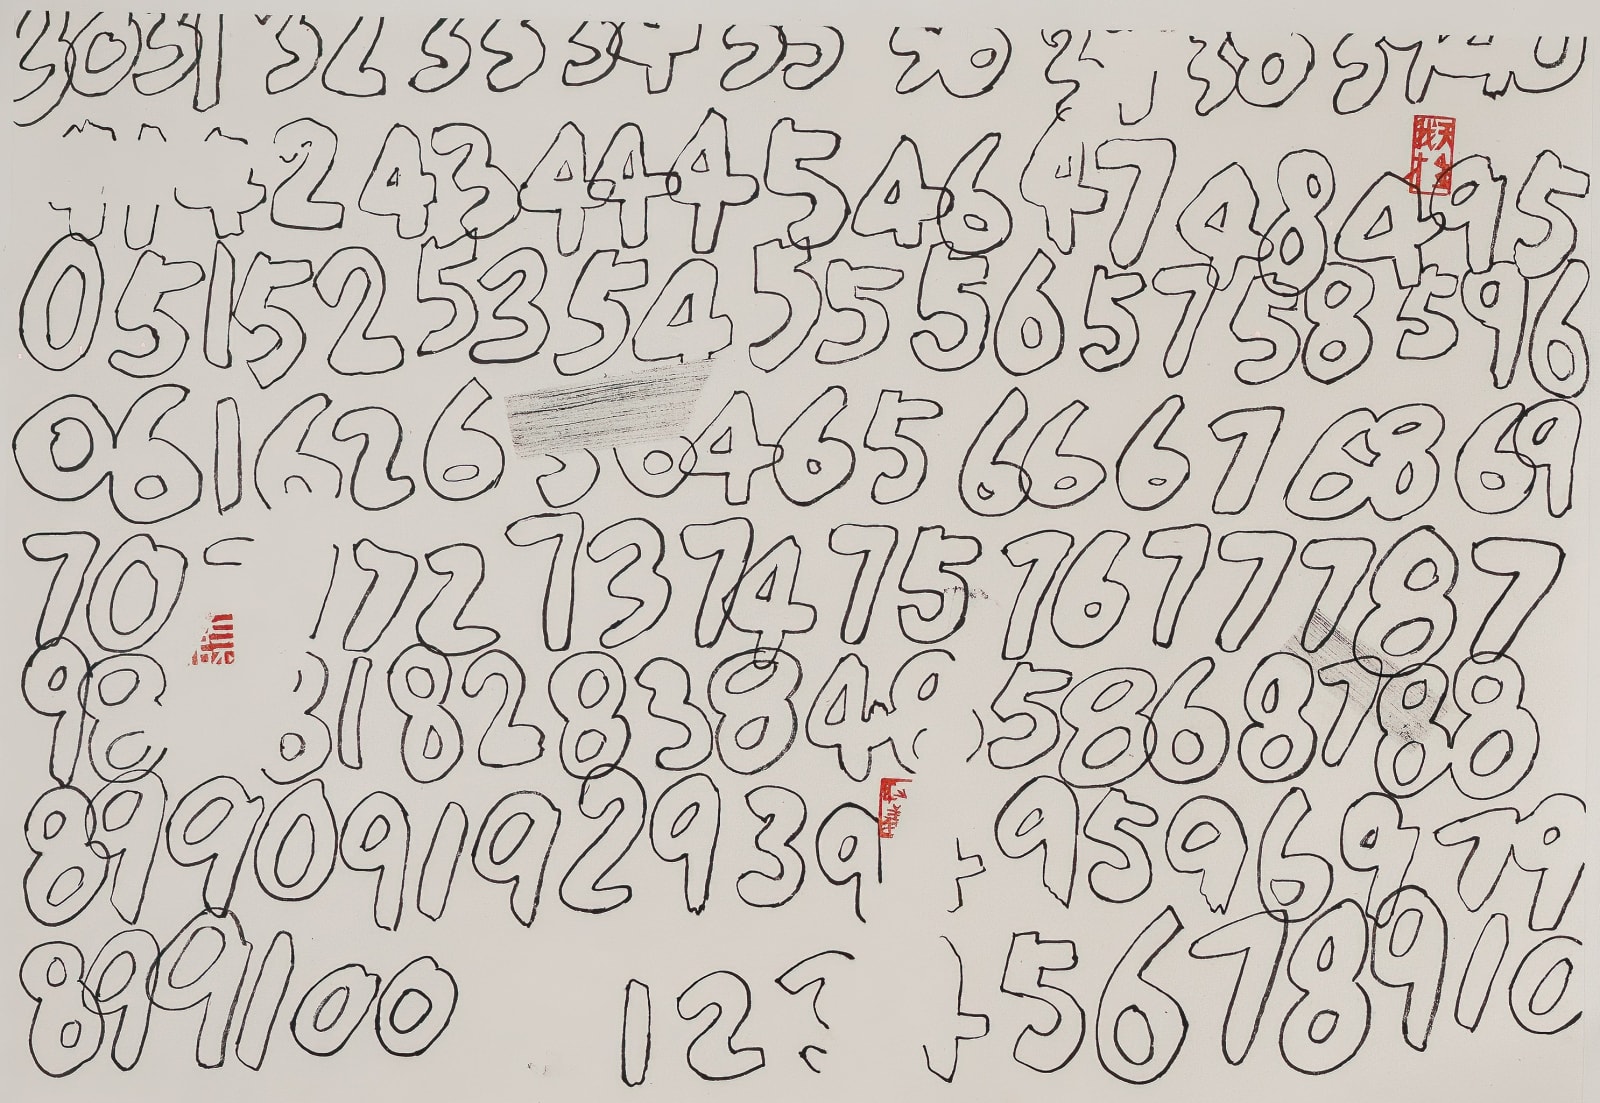 30 31 32 33 34 35 36 38 39 40
42 43 44 45 46 47 48 49 5
0 51 52 53 54 55 56 57 58 59 6
0 61 62 6 64 65 66 67 68 69
70 72 73 74 75 76 77 78 7
9 8 81 82 83 84 85 86 87 88
89 90 91 92 93 9 95 96 97 9
8 99 100 1 2 5 6 7 8 9 10